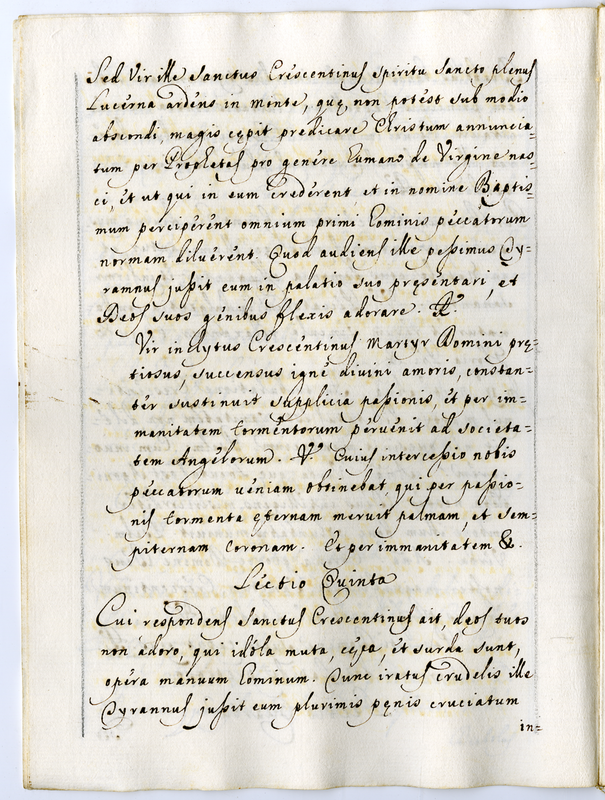 Sed Vir ille Sanctus Crescentinus spiritu sancto plenus
Lucerna ardens in monte, quę, non potest sub modio
abscondi, magis cępit predicare Christum annuncia=
tum per Prophetas pro genere humano de Virgine nas=
ci, et ut qui in eum crederent, et in nomine Baptis=
mum perciperent omnium primi hominis peccatorum
normam diluerent. Quod audiens ille pessimus Ty=
ramnus jussit eum in palatio suo pręsentari, et
Deos suos genibus flexis adorare. ℟.
Vir inclytus Crescentinus Martyr Domini prę=
tiosus, succensus igne divini amoris, constan=
ter sustinuit supplicia passionis, et per im=
manitatem tormentorum pervenit ad societa=
tem Angelorum. ℣. Cuius intercessio nobis
peccatorum veniam obtinebat, qui per passio=
nis tormenta ęternam meruit palmam, et sem=
piternam coronam. Et per immanitatem &.
Lectio Quinta
Cui respondens Sanctus Crescentinus ait, deos tuos
non adoro, qui idola muta, cęca, et surda sunt,
opera manuum hominum. Tunc iratus crudelis ille
Tyrannus jussit eum plurimis pęnis cruciatum
in=